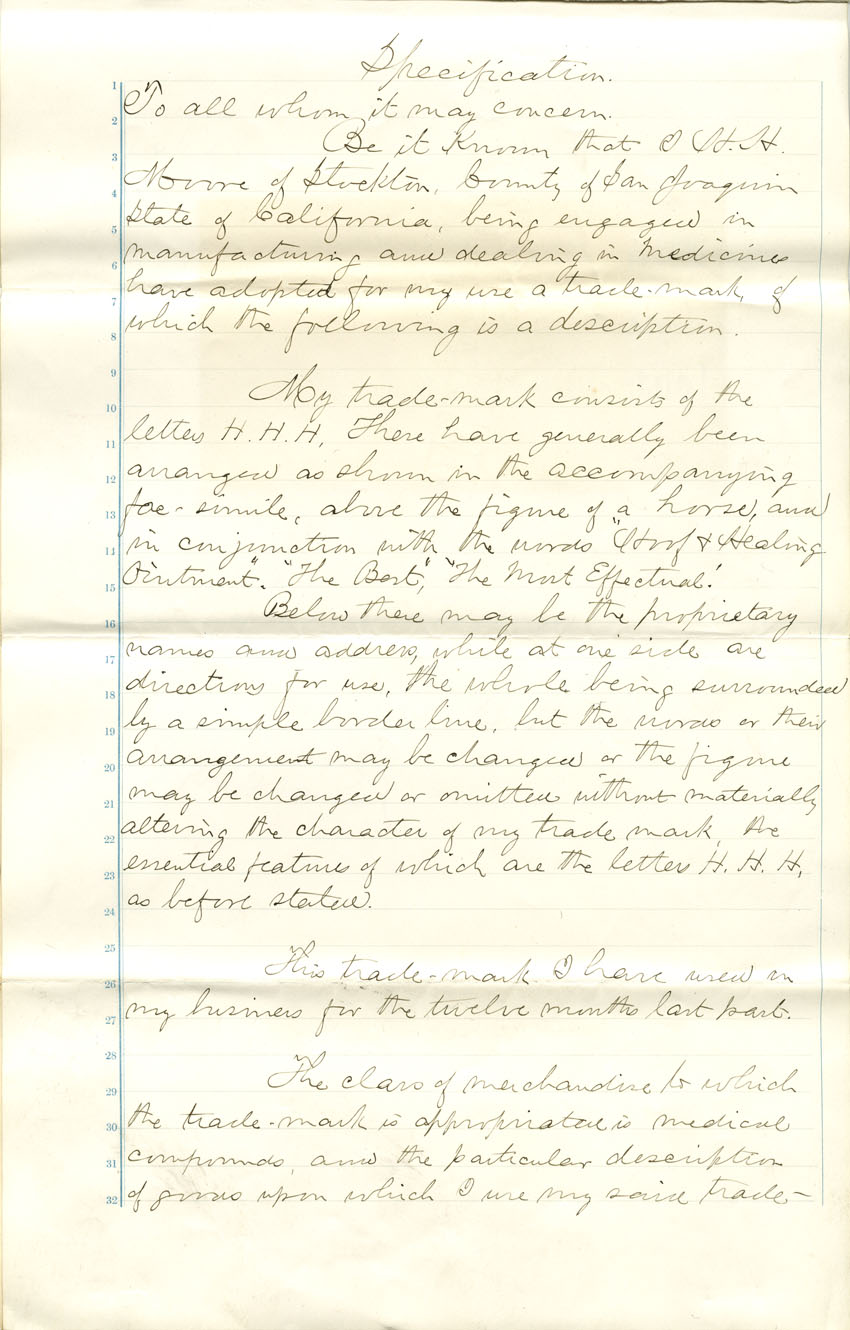 Specification.
1 To all whom it may concern.
2 Be it Known that I H. H.
3 Moore of Stockton, County of San Joaquin
4 State of California, being engaged in
5 manufacturing and dealing in Medicines
6 have adopted for my use a trade-mark, of
7 which the following is a description.
8
9 My trade-mark consists of the
10 letters H. H. H. These have generally been
11 arranged as shown in the accompanying
12 fac-simile, above the figure of a horse, and
13 in conjunction with the words "Hoof & Healing
14 Ointment". "The Best", "The Most Effectual."
15 Below there may be the proprietary
16 names and address, while at one side are
17 directions for use, the whole being surrounded
18 by a simple border line, but the words or their
19 arrangement may be changed or the figure
20 may be changed or omitted without materially
21 altering the character of my trade mark, the
22 essential features of which are the letters H. H. H,
23 as before stated.
24
25 This trade-mark I have used in
26 my business for the twelve months last past.
27
28 The class of merchandise to which
29 the trade-mark is appropriated is medical
30 compounds, and the particular description
31 of goods upon which I use my said trade-
32